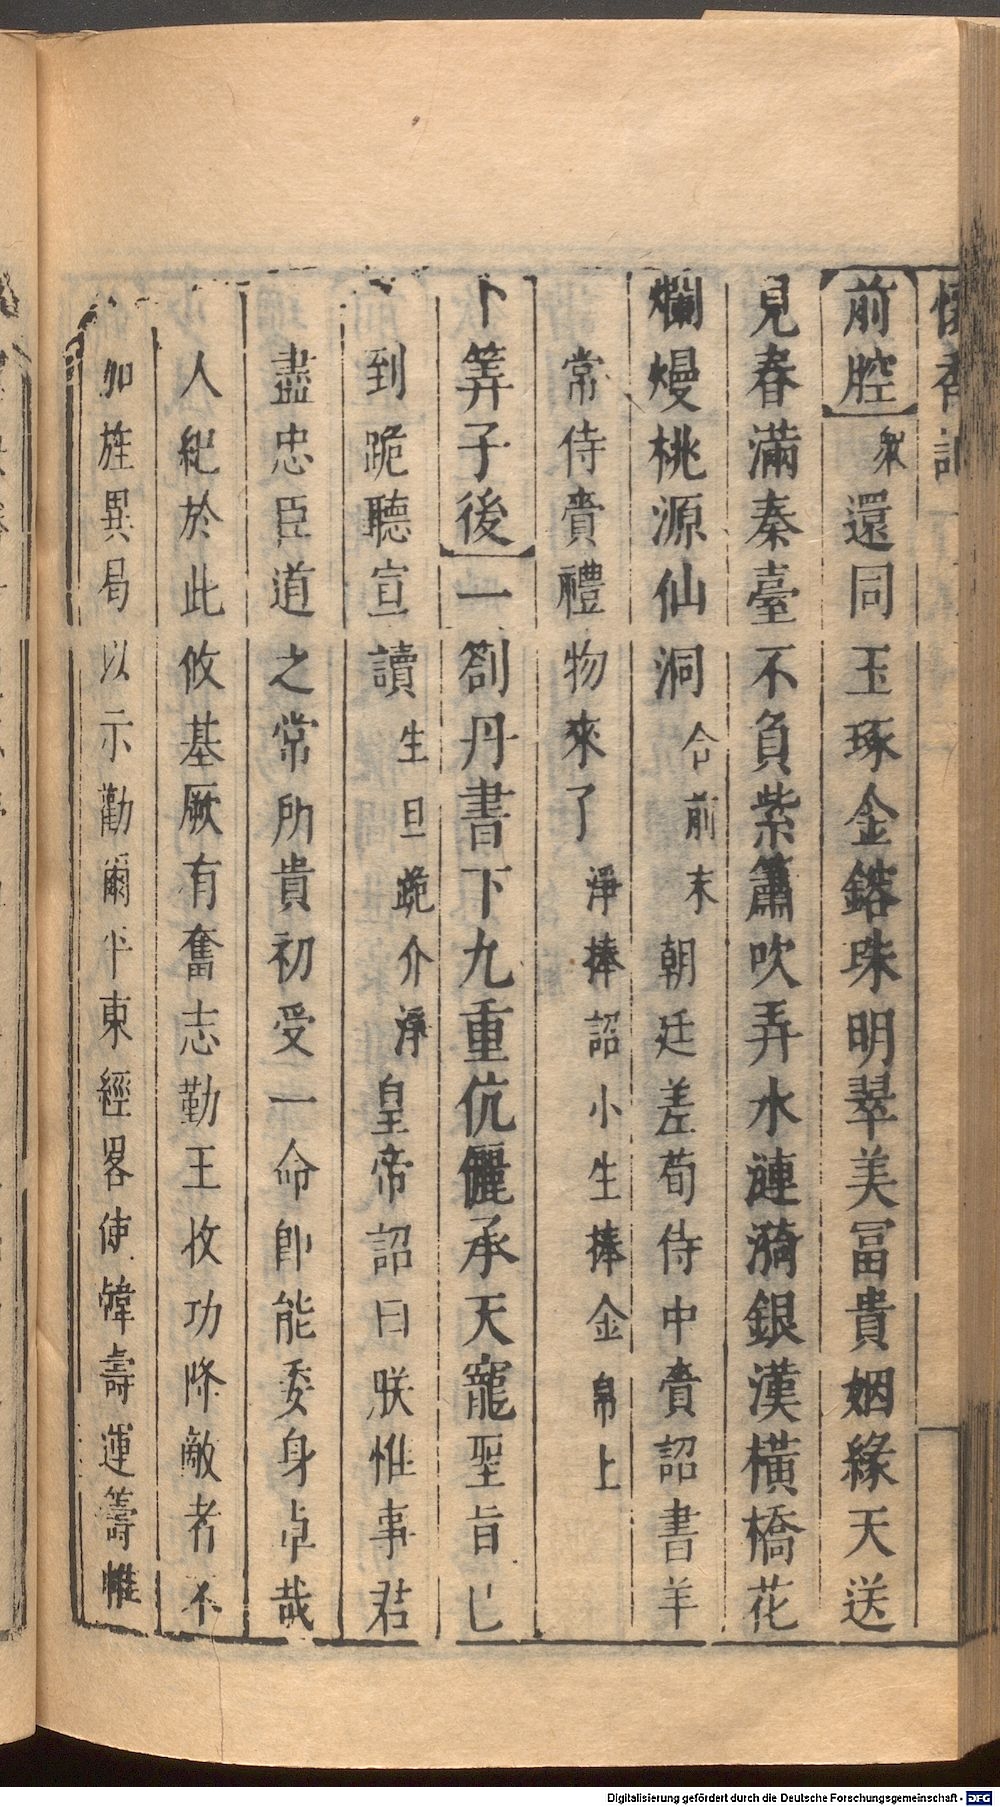 懷香記
前腔 衆 還同玉琢金鎔珠明翠美冨貴姻緣天送
見春滿秦臺不負紫簫吹弄水漣漪銀漢橫橋花
爛熳桃源仙洞 合前末 朝廷差荀侍中賫詔書羊
常侍賫禮物來了 淨捧詔小生捧金帛上
卜筭子後 一劄丹書下九重伉儷承天寵聖旨已
到跪聽宣讀 生旦跪介淨 皇帝詔曰朕惟事君
盡忠臣道之常所貴初受一命卽能委身卓哉
人紀於此攸基厥有奮志勤王收功降敵者不
加旌異曷以示勸爾平東經畧使韓壽運籌帷
Digitalisierung gefördert durch die Deutsche Forschungsgemeinschaft - DFG